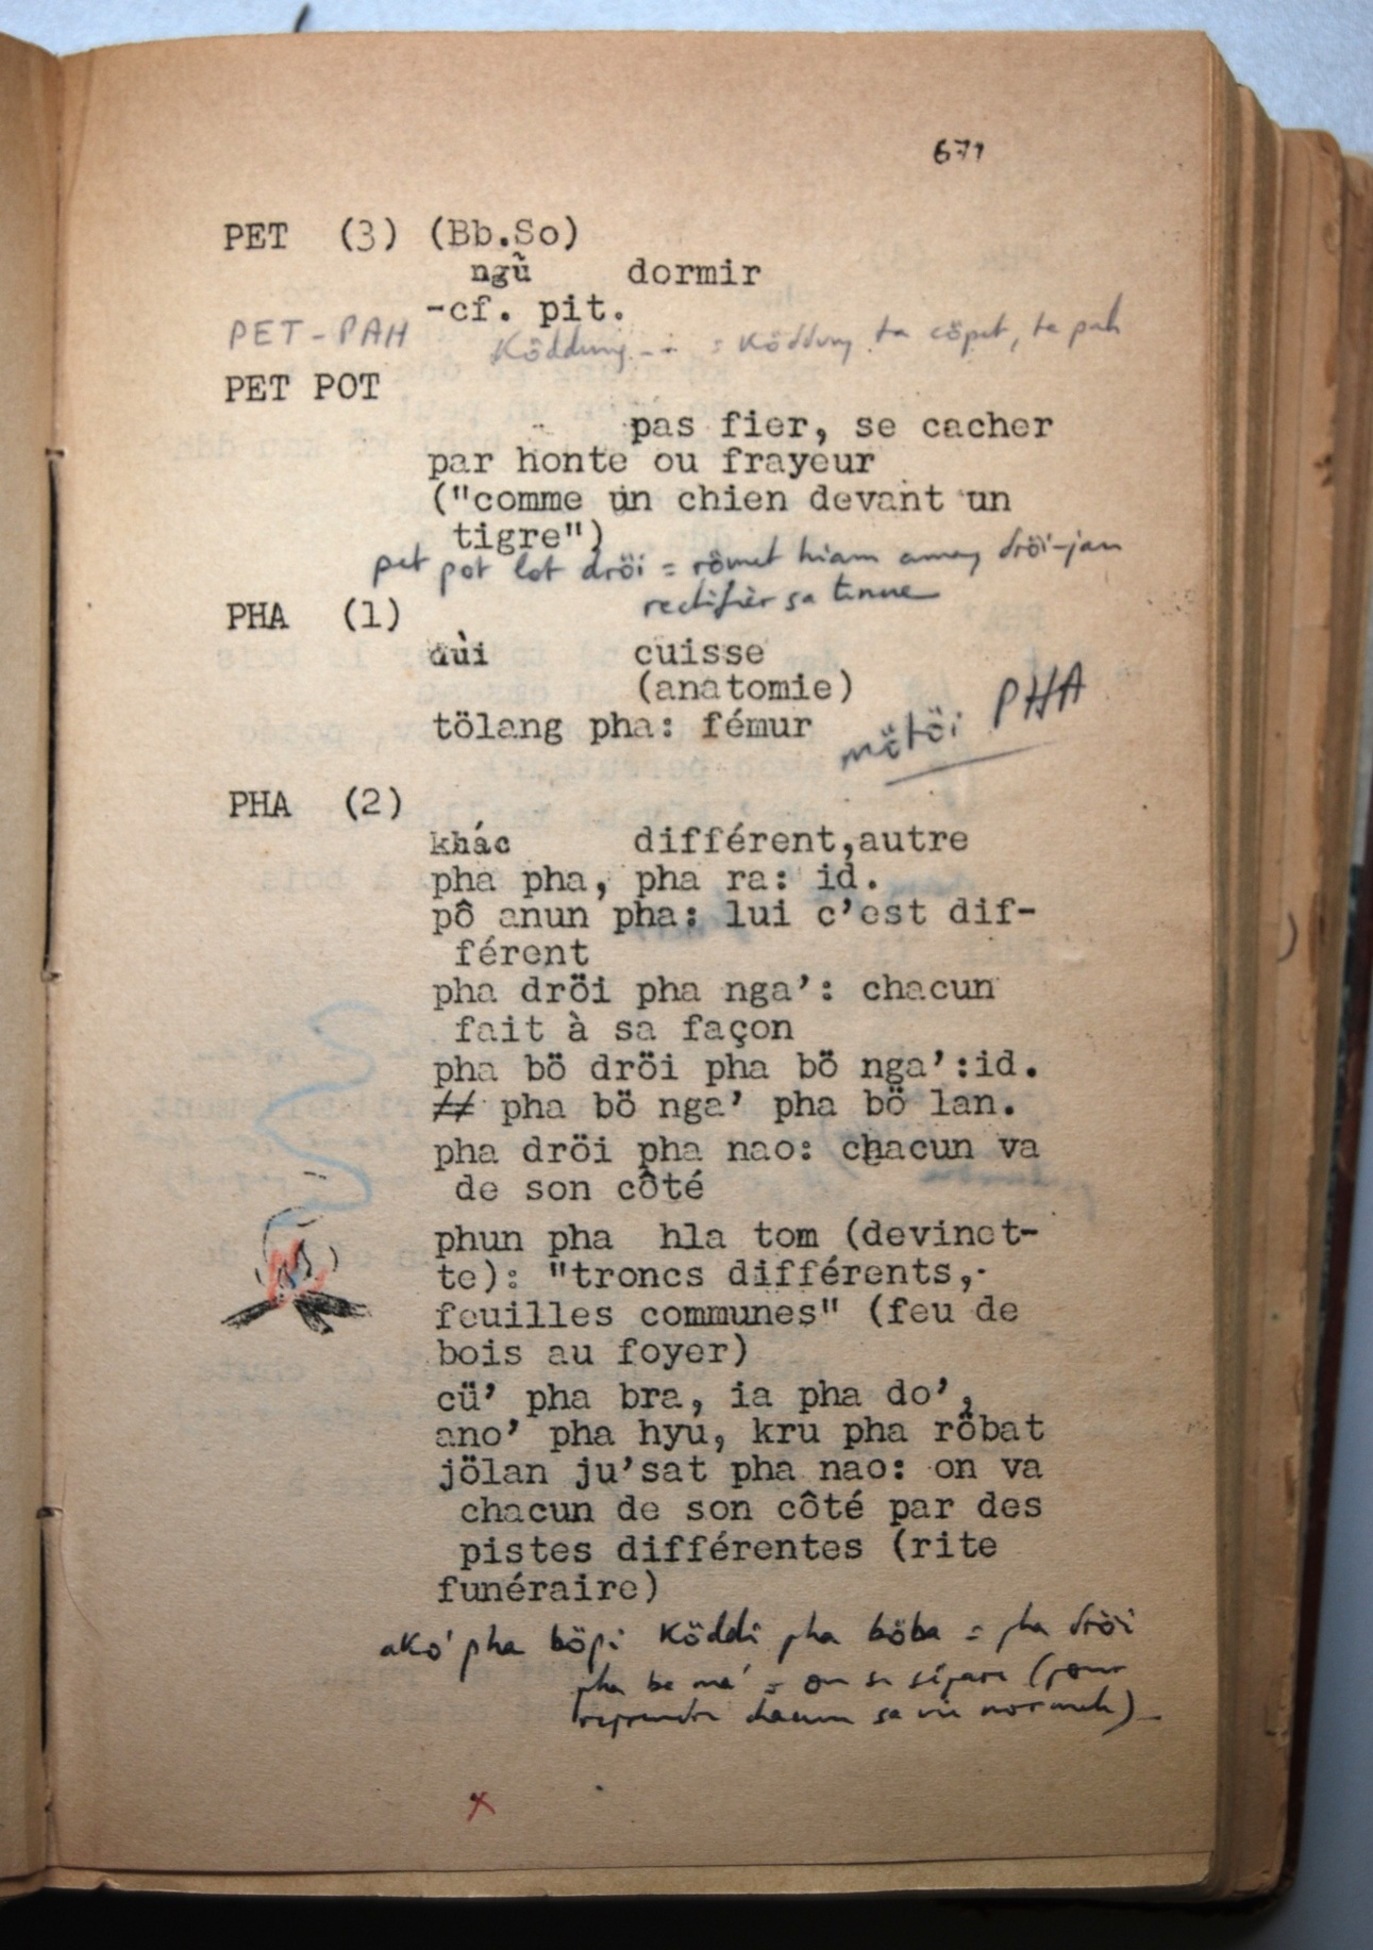 671
PET (3) (Bb.So)
ngũ dormir
-cf. pit.
PET-PAH Köddung -- = Köddung ta cöpet, ta pah
PET POT
pas fier, se cacher
par honte ou frayeur
("comme un chien devant un
tigre")
pet pot lot dröi = römet hiam amey dröi-jan
rectifier sa tenue
PHA (1)
đùi cuisse
(anatomie)
tölang pha: fémur
mötöi PHA
PHA (2)
khác différent,autre
pha pha, pha ra: id.
pô anun pha: lui c'est dif-
férent
pha dröi pha nga': chacun
fait à sa façon
pha bö dröi pha bö nga':id.
// pha bö nga' pha bö lan.
pha dröi pha nao: chacun va
de son côté
phun pha hla tom (devinet-
te): "troncs différents,
feuilles communes" (feu de
bois au foyer)
cü' pha bra, ia pha do',
ano' pha hyu, kru pha röbat
jölan ju'sat pha nao: on va
chacun de son côté par des
pistes différentes (rite
funéraire)
akö' pha böpi Köddi pha böba = pha dröi
pha be ma' = on se sépare (pour
reprendre chacun sa vie normale)